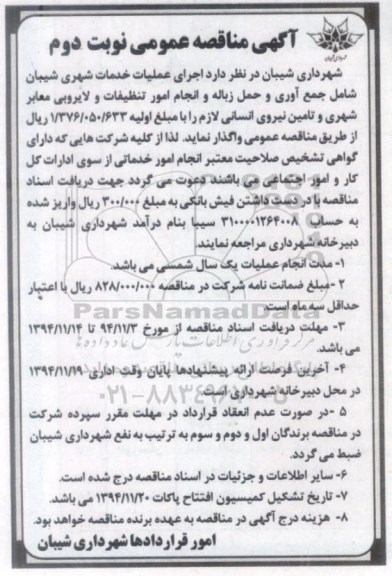 آگهی مناقصه عمومی نوبت دوم
شهرداری شیبان در نظر دارد اجرای عملیات خدمات شهری شیبان
شامل جمع آوری و حمل زباله و انجام امور تنظیفات و لایروبی معابر
شهری و تامین نیروی انسانی لازم را با مبلغ اولیه ۱/۳۷۶/۰۵۰/۶۳۳ ریال
از طریق مناقصه عمومی واگذار نماید. لذا از کلیه شرکت هایی که دارای
گواهی تشخیص صلاحیت معتبر انجام امور خدماتی از سوی ادارات کل
کار و امور اجتماعی می باشند دعوت می گردد جهت دریافت اسناد
مناقصه با در دست داشتن فیش بانکی به مبلغ ۳۰۰/۰۰۰ ریال واریز شده
به حساب ۳۱۰۰۰۰۱۲۶۴۰۰۸ سیبا بنام درآمد شهرداری شیبان به
دبیرخانه شهرداری مراجعه نمایند.
۱- مدت انجام عملیات یک سال شمسی می باشد.
۲ -مبلغ ضمانت نامه شرکت در مناقصه ۸۲۸/۰۰۰/۰۰۰ ریال با اعتبار
حداقل سه ماه است.
ParsNamadData
۳- مهلت دریافت اسناد مناقصه از مورخ ۹۴/۱۱/۳ تا ۱۳۹۴/۱۱/۱۴
می باشد.
۴- آخرین فرصت ارائه پیشنهادها پایان وقت اداری ۱۳۹۴/۱۱/۱۹
در محل دبیرخانه شهرداری است.
۵ -در صورت عدم انعقاد قرارداد در مهلت مقرر سپرده شرکت
در مناقصه برندگان اول و دوم و سوم به ترتیب به نفع شهرداری شیبان
ضبط می گردد.
۶- سایر اطلاعات و جزئیات در اسناد مناقصه درج شده است.
۷- تاریخ تشکیل کمیسیون افتتاح پاکات ۱۳۹۴/۱۱/۲۰ می باشد.
۸- هزینه درج آگهی در مناقصه به عهده برنده مناقصه خواهد بود.
امور قراردادها شهرداری شیبان